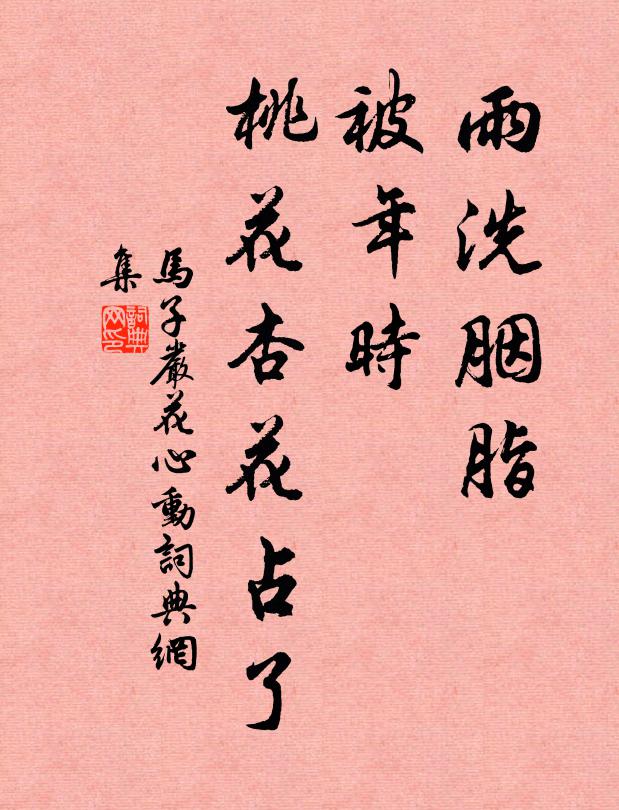 雨洗胭脂
被年時
桃花杏花占了
馬子嚴花心動詞典網
集
詞典
网印